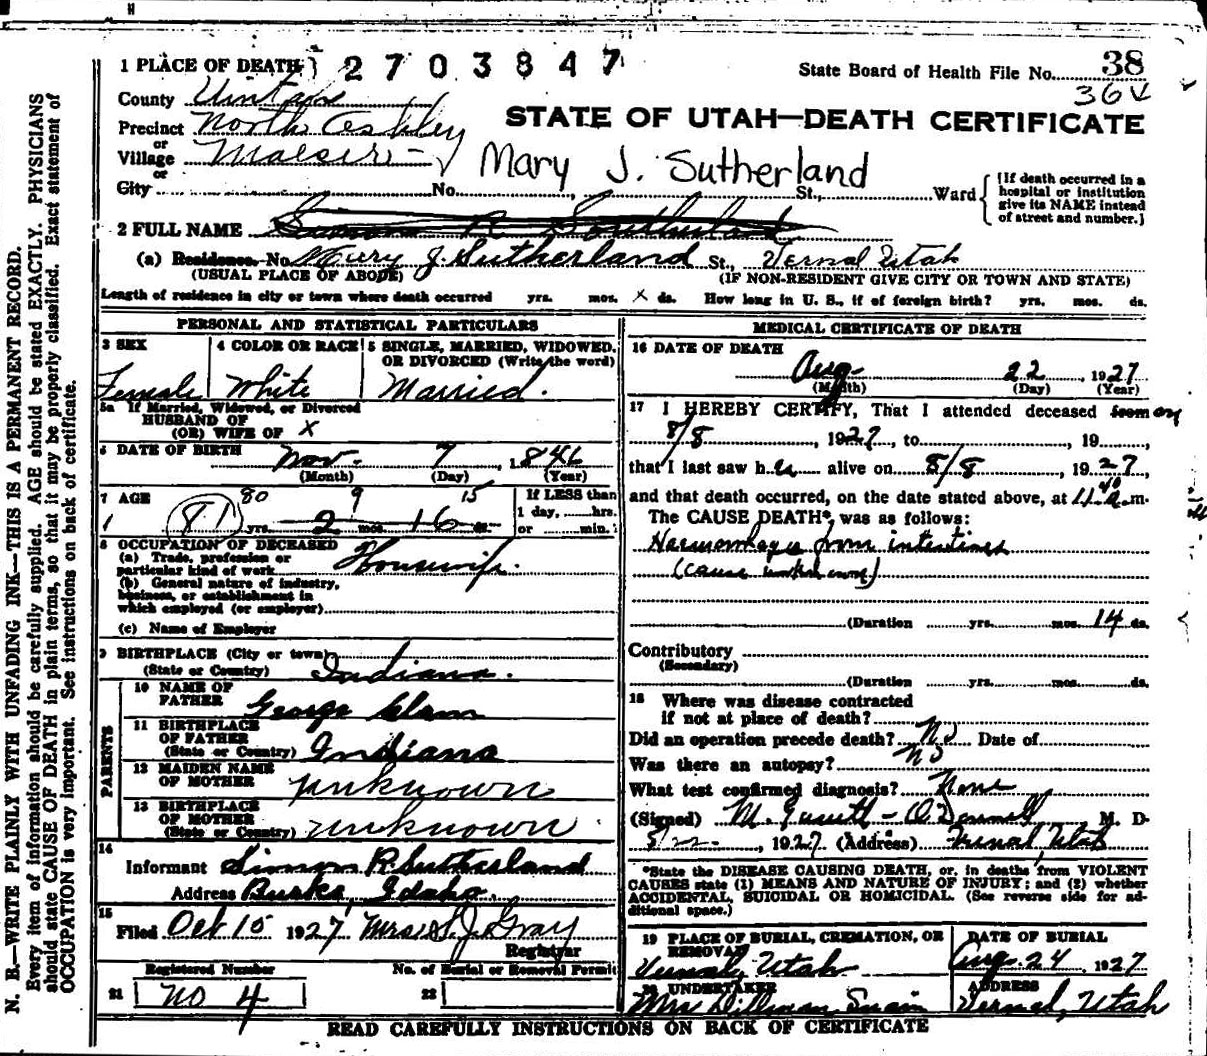 1 PLACE OF DEATH 2703847
State Board of Health File No. 38
36V
County Uintah
STATE OF UTAH—DEATH CERTIFICATE
Precinct North Ashley
or
Village Maeser
or
Mary J. Sutherland
City No. St., Ward
[If death occurred in a hospital or institution give its NAME instead of street and number.]
2 FULL NAME Simon R Southerland
(a) Residence. No. Mary J. Sutherland St., Vernal Utah
(USUAL PLACE OF ABODE) (IF NON-RESIDENT GIVE CITY OR TOWN AND STATE)
Length of residence in city or town where death occurred yrs. mos. X ds. How long in U. S., if of foreign birth? yrs. mos. ds.
PERSONAL AND STATISTICAL PARTICULARS
3 SEX
Female
4 COLOR OR RACE
White
5 SINGLE, MARRIED, WIDOWED, OR DIVORCED (Write the word)
Married.
5a If Married, Widowed, or Divorced
HUSBAND OF
(OR) WIFE OF X
6 DATE OF BIRTH Nov. 7, 1846
(Month) (Day) (Year)
7 AGE 80 9 15
81 yrs. 2 mos. 16 ds.
If LESS than
1 day, hrs.
or min.
8 OCCUPATION OF DECEASED
(a) Trade, profession or
particular kind of work Housewife.
(b) General nature of industry,
business, or establishment in
which employed (or employer)
(c) Name of Employer
9 BIRTHPLACE (City or town)
(State or Country) Indiana.
PARENTS
10 NAME OF
FATHER George
11 BIRTHPLACE
OF FATHER
(State or Country) Indiana
12 MAIDEN NAME
OF MOTHER unknown
13 BIRTHPLACE
OF MOTHER
(State or Country) unknown
14
Informant Simon R. Sutherland
Address Burke, Idaho.
15
Filed Oct 15 1927 Mrs. S. J. Gray
Registrar
Registered Number
21 No 4
No. of Burial or Removal Permit
22
MEDICAL CERTIFICATE OF DEATH
16 DATE OF DEATH
Aug 22, 1927
(Month) (Day) (Year)
17 I HEREBY CERTIFY, That I attended deceased from on
8/8, 1927, to, 19,
that I last saw her alive on 8/8, 1927,
and that death occurred, on the date stated above, at 11.40 a m.
The CAUSE DEATH*, was as follows:
Haemorrhage from intestines
(cause unknown)
(Duration yrs. mos. 14 ds.
Contributory
(Secondary)
(Duration yrs. mos. ds.
18 Where was disease contracted
if not at place of death?
Did an operation precede death? No Date of
Was there an autopsy? No
What test confirmed diagnosis? None
(Signed) M. M. D.
8/22, 1927 (Address) Vernal, Utah
*State the DISEASE CAUSING DEATH, or, in deaths from VIOLENT
CAUSES state (1) MEANS AND NATURE OF INJURY; and (2) whether
ACCIDENTAL, SUICIDAL OR HOMICIDAL. (See reverse side for ad-
ditional space.)
19 PLACE OF BURIAL, CREMATION, OR
REMOVAL
Vernal, Utah
DATE OF BURIAL
Aug. 24, 1927
20 UNDERTAKER
Mrs Dillman, Swain
ADDRESS
Vernal, Utah
READ CAREFULLY INSTRUCTIONS ON BACK OF CERTIFICATE
N. B.—WRITE PLAINLY WITH UNFADING INK—THIS IS A PERMANENT RECORD.
Every item of information should be carefully supplied. AGE should be stated EXACTLY. PHYSICIANS
should state CAUSE OF DEATH in plain terms, so that it may be properly classified. Exact statement of
OCCUPATION is very important. See instructions on back of certificate.